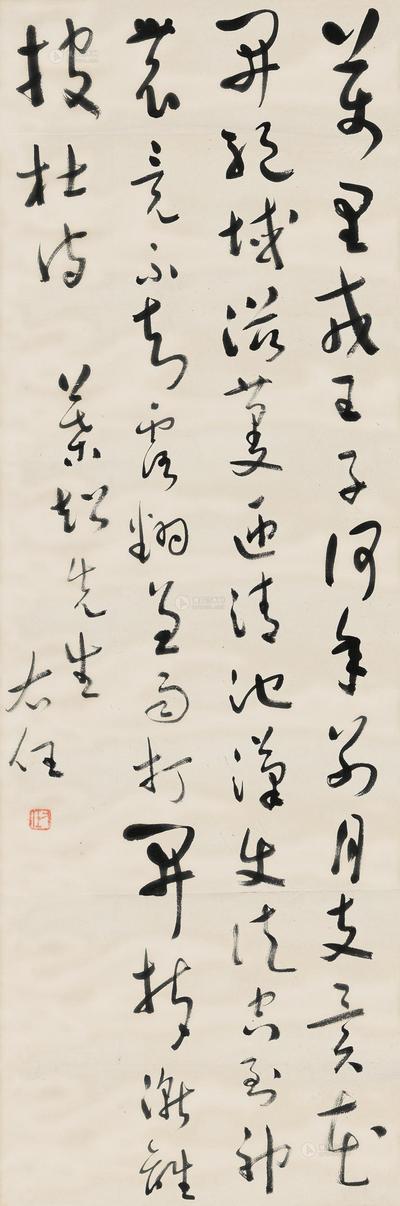 萬里戎王子何年別月支異花
開絕域滋蔓匝清池漢使徒空到神
農竟不知露翻兼雨打開拆漸離
披杜詩
超先生
右任